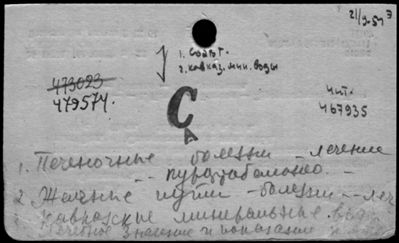 21/9-51 э
1. Совет.
2. Кавказ. мин. воды
473093
479574.
Чит.
467935
С
1. Печеночные болезни - лечение
2. Желчные пути - болезни - леч
Кавказские минеральные воды
Лечебное значение и показания